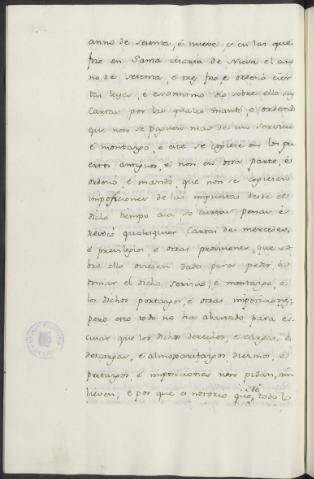 anno de setenta, é nueve, y en las que
fizo en Santa Maria de Nieva el an
no de setenta, é tres, fizo é ordenó cier
tas leyes, é sobre ello sus
Cartas por las quales mandó, é ordenó
que non se pagase mas de un servicio
é montazgo, é que se cogiese en los pu
ertos antiguos, é non en otra parte, é
ordenó, é mandó, que non se cogiesen
imposiciones de las impuestas desde el
dicho tiempo acá so ciertas penas, é
revocó qualesquier Cartas de mercedes,
é previlegios, é otras provisiones, que so
bre ello oviesen dado para pedir, é
tomar el dicho servicio, é montazgo, é
los dichos portazgos, é otras imposiciones;
pero esto todo no ha abastado para es
cusar que los dichos derechos, é cargas, é
descargas, é almoxarifazgos, diezmos, é
portazgos é imposiciones non pidan, nin
lleven; é por que es notorio que, todo lo